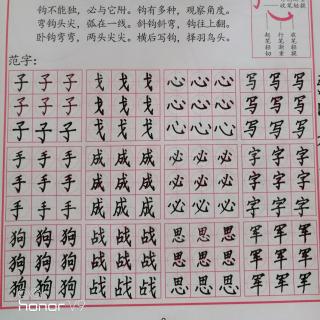 钩不能独，必与它附。钩有多种，观察角度。
弯钩头尖，弧在一线。斜钩斜弯，钩往上翻。
卧钩弯弯，两头尖尖。横后写钩，择羽鸟头。
收笔轻提
起笔轻切
行笔渐重
收笔轻提
范字：
子子子 戈戈戈 心心心 写写写
子子子 戈戈戈 心心心 写写写
子子子 戈戈戈 心心心 写写写
手手手 成成成 必必必 字字字
手手手 成成成 必必必 字字字
手手手 成成成 必必必 字字字
狗狗狗 战战战 思思思 军军军
狗狗狗 战战战 思思思 军军军
狗狗狗 战战战 思思思 军军军
honor V9